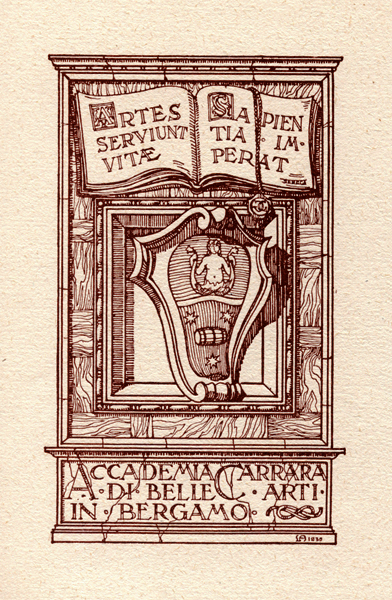 ARTES
SERVIUNT
VITÆ
SAPIEN
TIA · IM-
PERAT
ACCADEMIA CARRARA
· DI · BELLE · ARTI ·
IN · BERGAMO ·